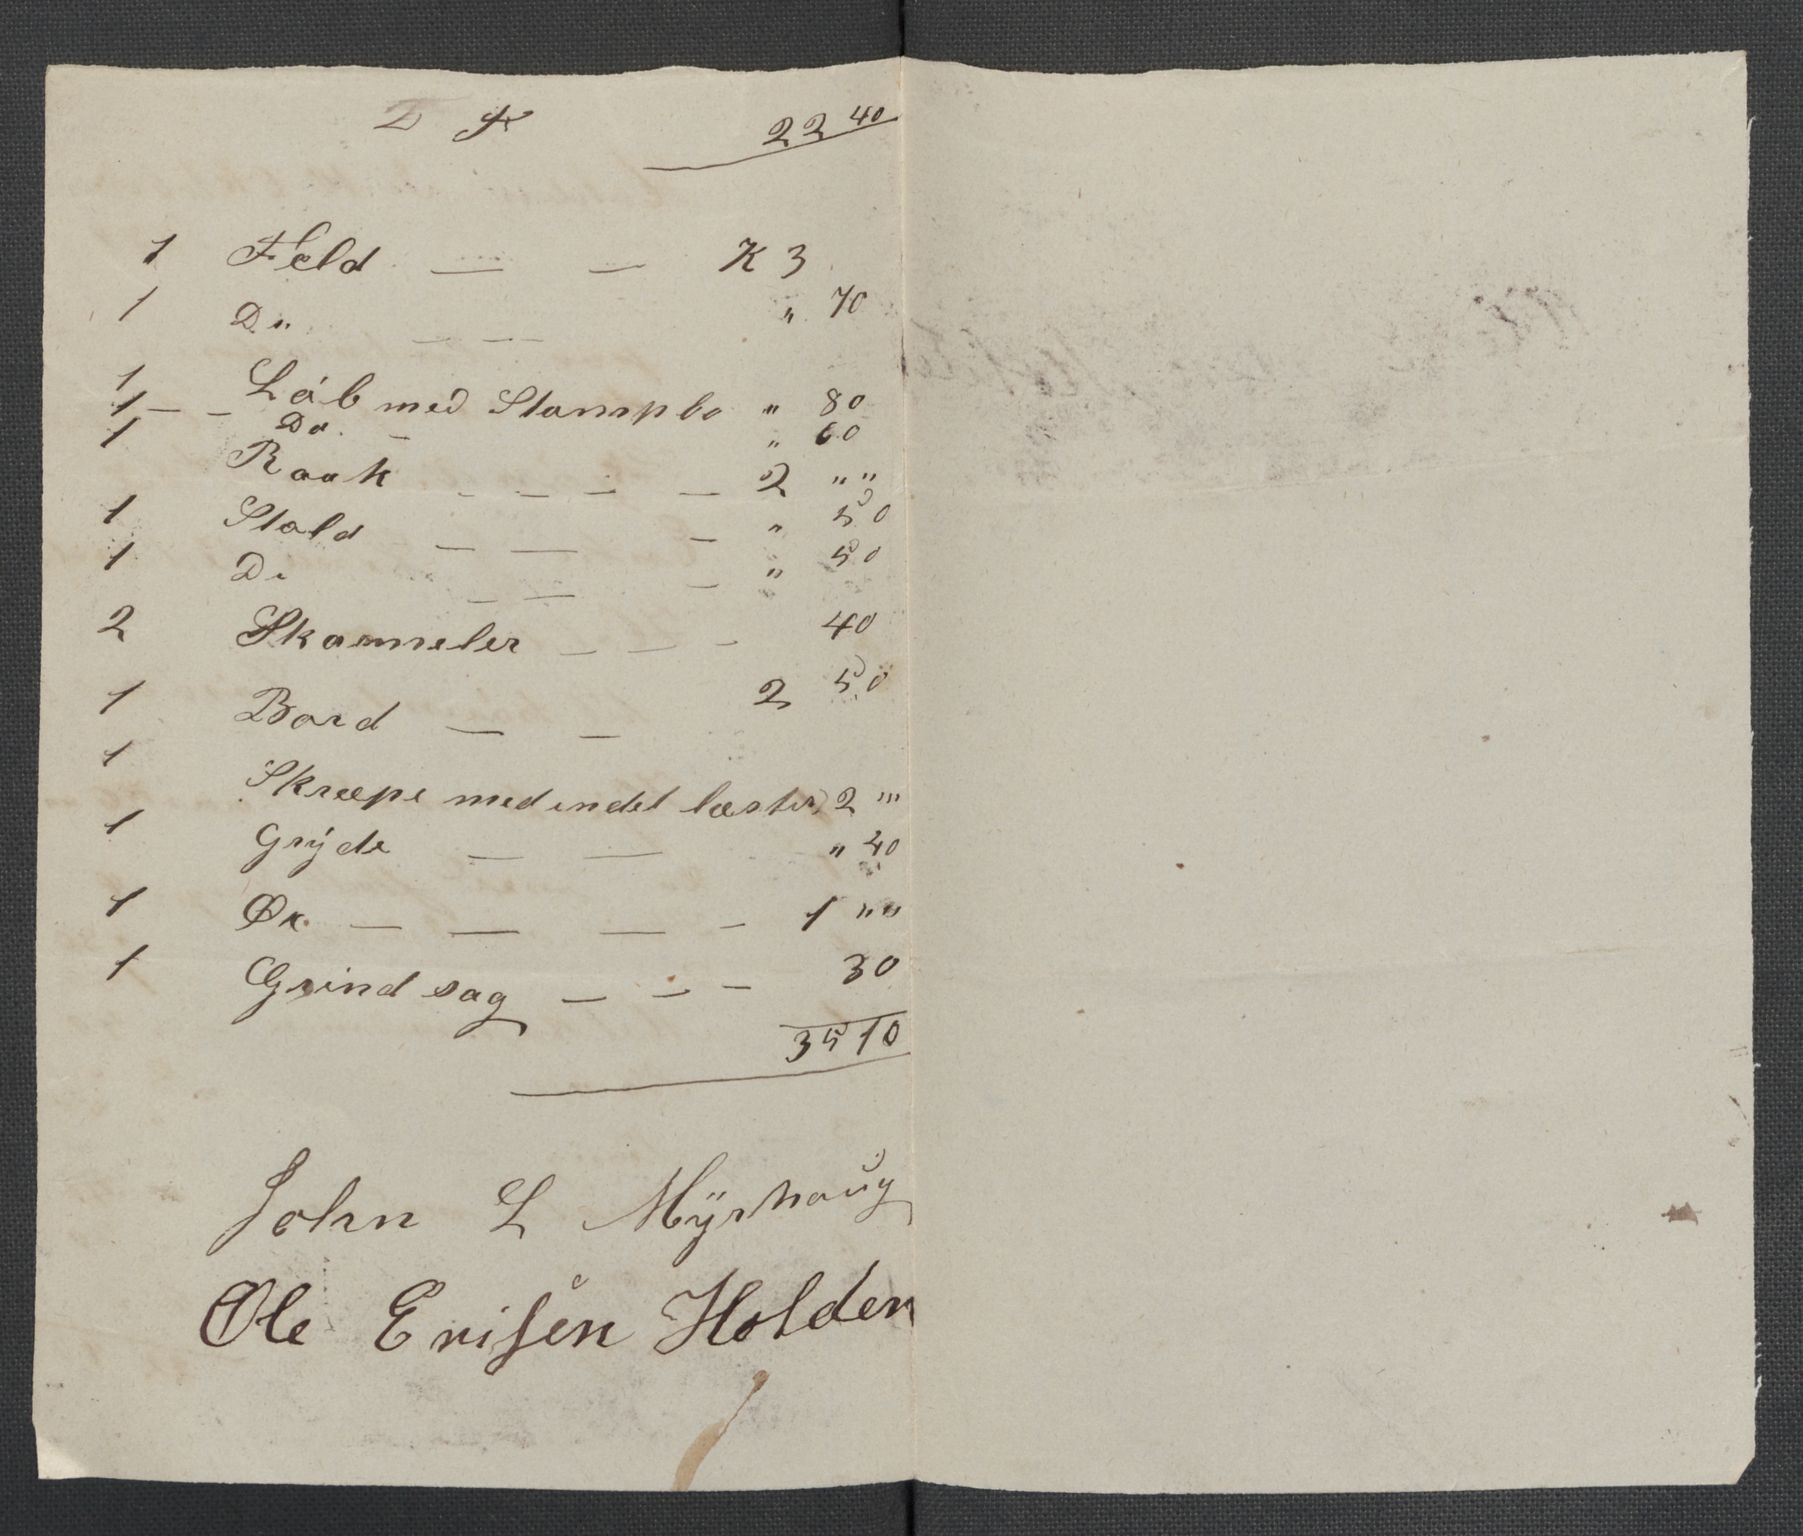 22 40
1 Feld — — K 3
1 Do — — — " 70
1 Láb med Stampbo " 80
1 — — Do. — " 60
1 Raak — — — — 2 " "
1 Stold — — — " 50
1 Do — — — " 50
2 Skammeler — — — 40
1 Bord — — 2 50
1 Skræpe med endel læster 2 "
1 Grÿde — — " 40
1 Øx — — — — 1 " "
1 Grind sag — — — 30
35 10
John L Mÿrhaŭg
Ole Erisen Holden